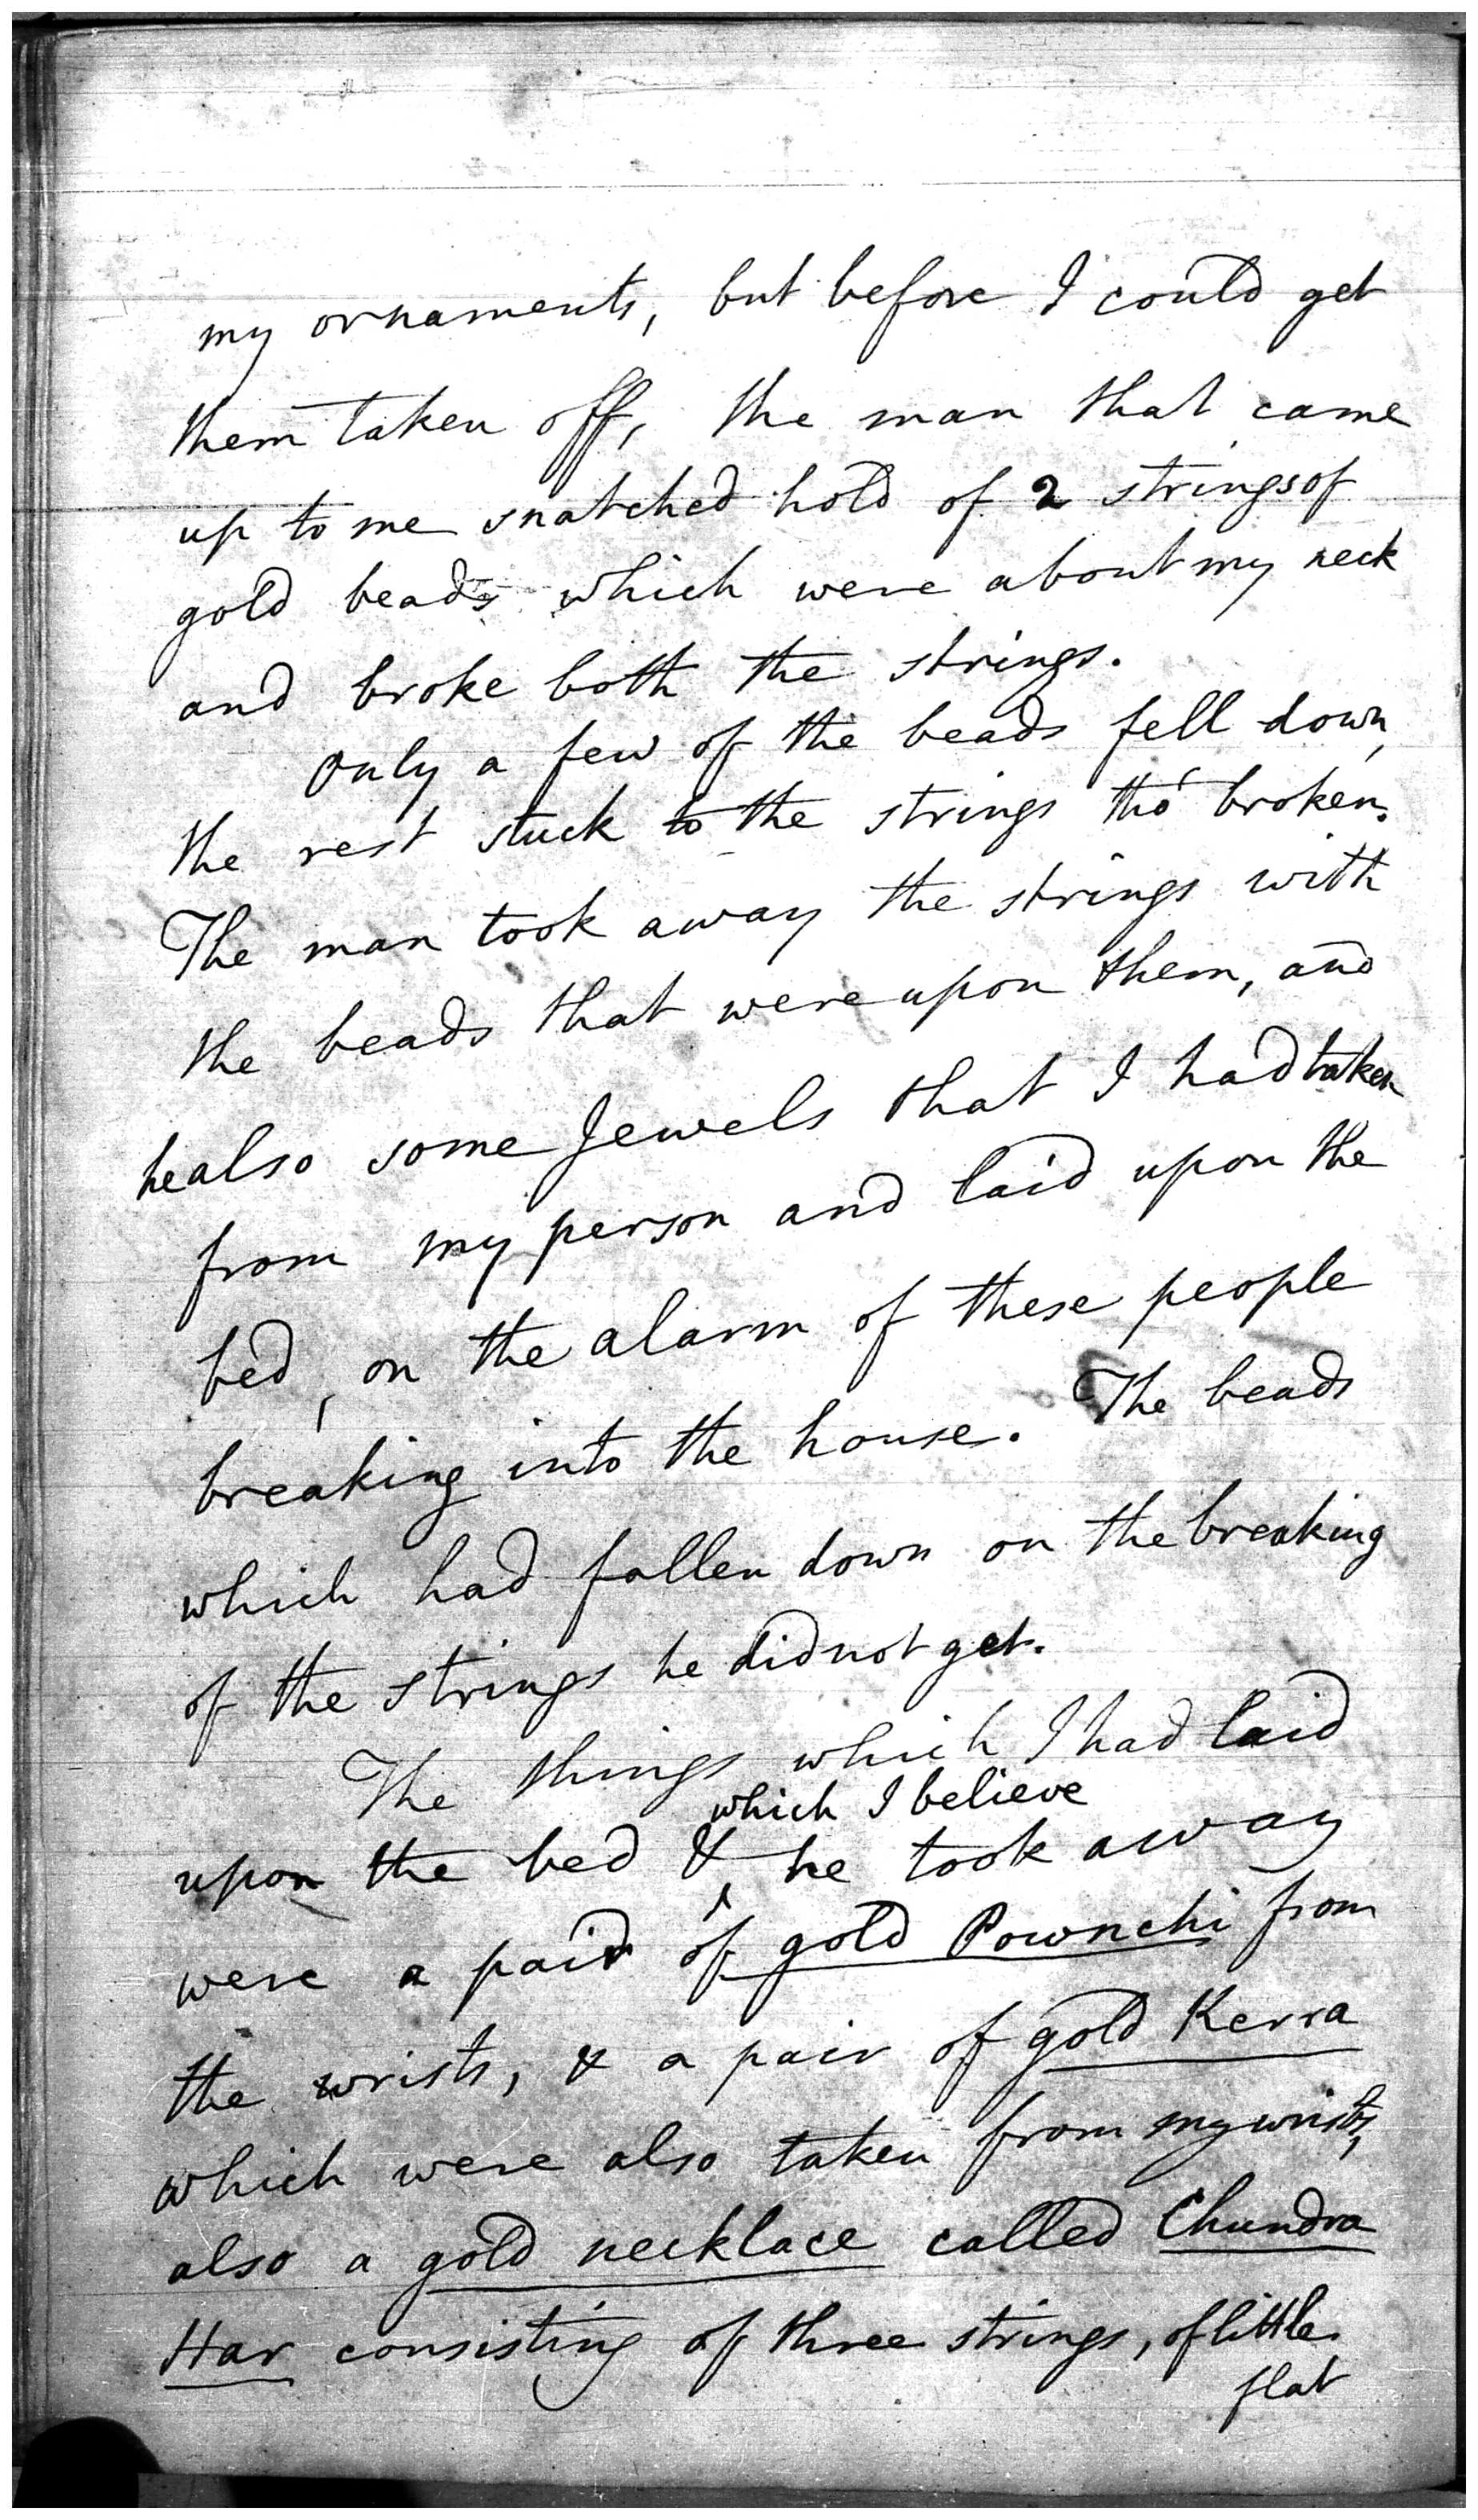 my ornaments, but before I could get
them taken off, the man that came
up to me snatched hold of 2 strings of
gold beads which were about my neck
and broke both the strings.
Only a few of the beads fell down,
the rest stuck to the strings tho' broken.
The man took away the strings with
the beads that were upon them, and
he also some Jewels that I had taken
from my person and laid upon the
bed, on the alarm of these people
breaking into the house. The beads
which had fallen down on the breaking
of the strings he did not get.
The things which I had laid
which I believe
upon the bed & he took away
were a pair of gold Pownchi from
the wrists, & a pair of gold Kerra
which were also taken from my wrists,
also a gold necklace called Chundra
Har consisting of three strings, of little
flat